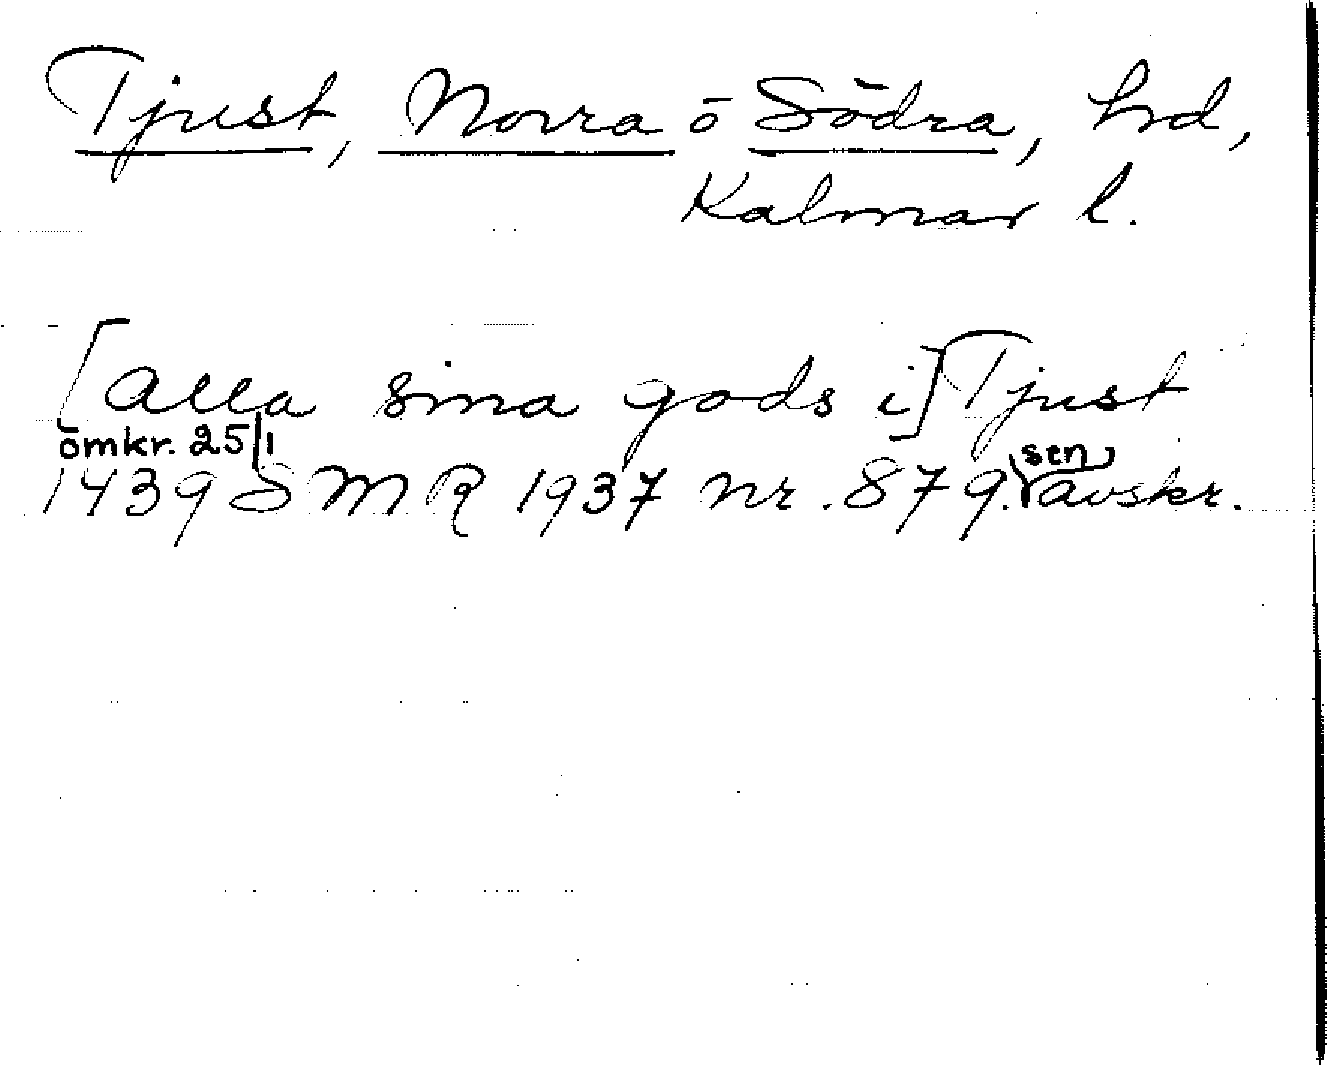 Tjust, Norra o Södra, hd,
Kalmar l.
[alla sina gods i] Tjust
omkr. 25/1
1439 SMR 1937 nr. 879. sen avskr.